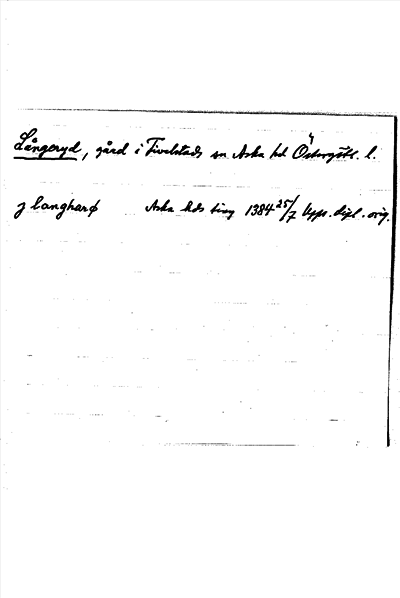 Långeryd, gård i Tivelstads sn Aska hd Östergötl. l.
j langharø Aska hds ting 1384 25/7 Upps. dipl. orig.